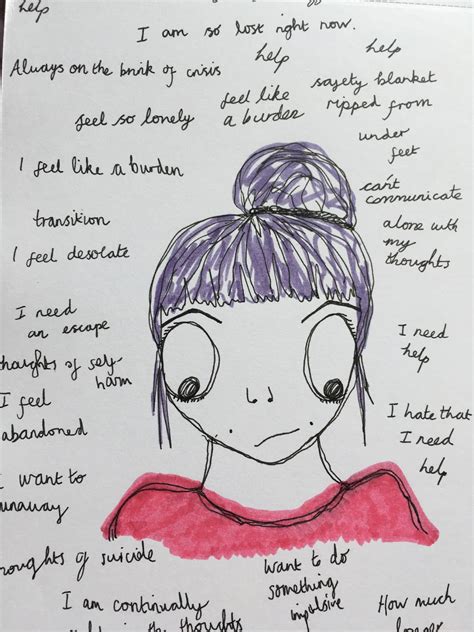 help
I am so lost right now.
help
help
Always on the brink of crisis
feel so lonely
feel like
a burden
safety blanket
ripped from
under
feet
I feel like a burden
can't
communicate
transition
alone with
my
thoughts
I feel desolate
I need
an escape
I need
help
thoughts of self-
harm
I feel
abandoned
I hate that
I need
help
I want to
runaway
thoughts of suicide
want to do
something
impulsive
I am continually
in the thoughts
How much
longer